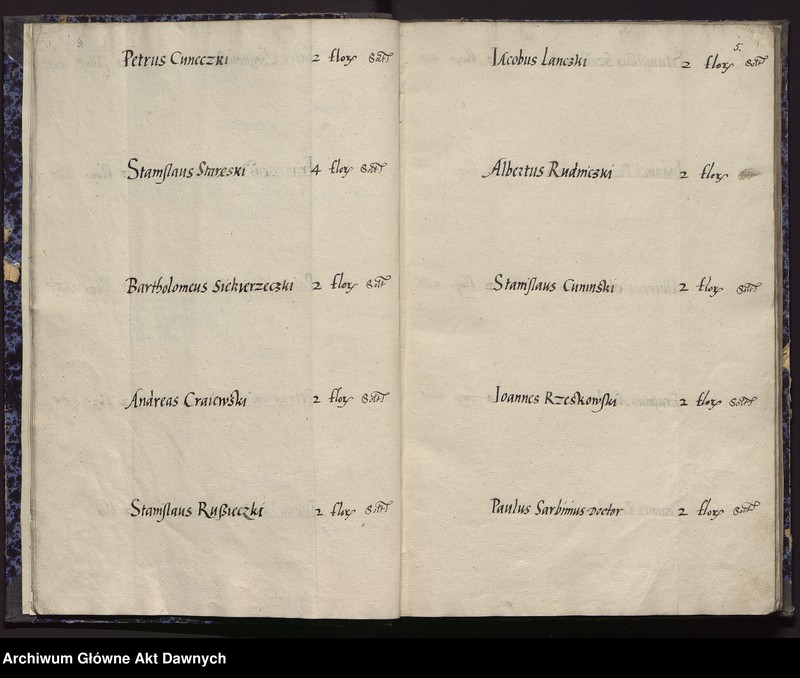 Petrus Cuneczki 2 flor Sol
Stanislaus Stareski 4 flor Sol
Bartholomeus Siekierzeczki 2 flor Sol
Andreas Craiewski 2 flor Sol
Stanislaus Rußieczki 2 flor Sol
5.
Iacobus Lanczki 2 flor Sol
Albertus Rudniczki 2 flor
Stanislaus Cuninski 2 flor Sol
Ioannes Rzeskowski 2 flor Sol
Paulus Sarbinius Doctor 2 flor Sol
Archiwum Główne Akt Dawnych